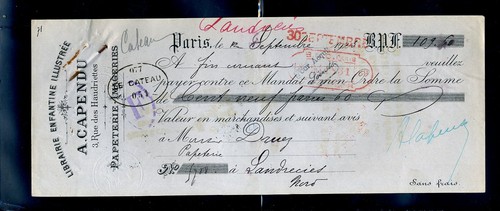 Landrecies
Cateau
LIBRAIRIE ENFANTINE ILLUSTRÉE
A. CAPENDU
3, Rue des Haudriettes
PAPETERIE-IMAGERIES
CATEAU
30 SEPTEMBRE
Paris, le Septembre B.P.F. 109,60
A fin courant veuillez
payer contre ce Mandat à mon Ordre la Somme
de Cent neuf francs 60
Valeur en marchandises et suivant avis
à Monsieur Druez
Papeterie
à Landrecies
Nord
Sans frais.
A Capendu